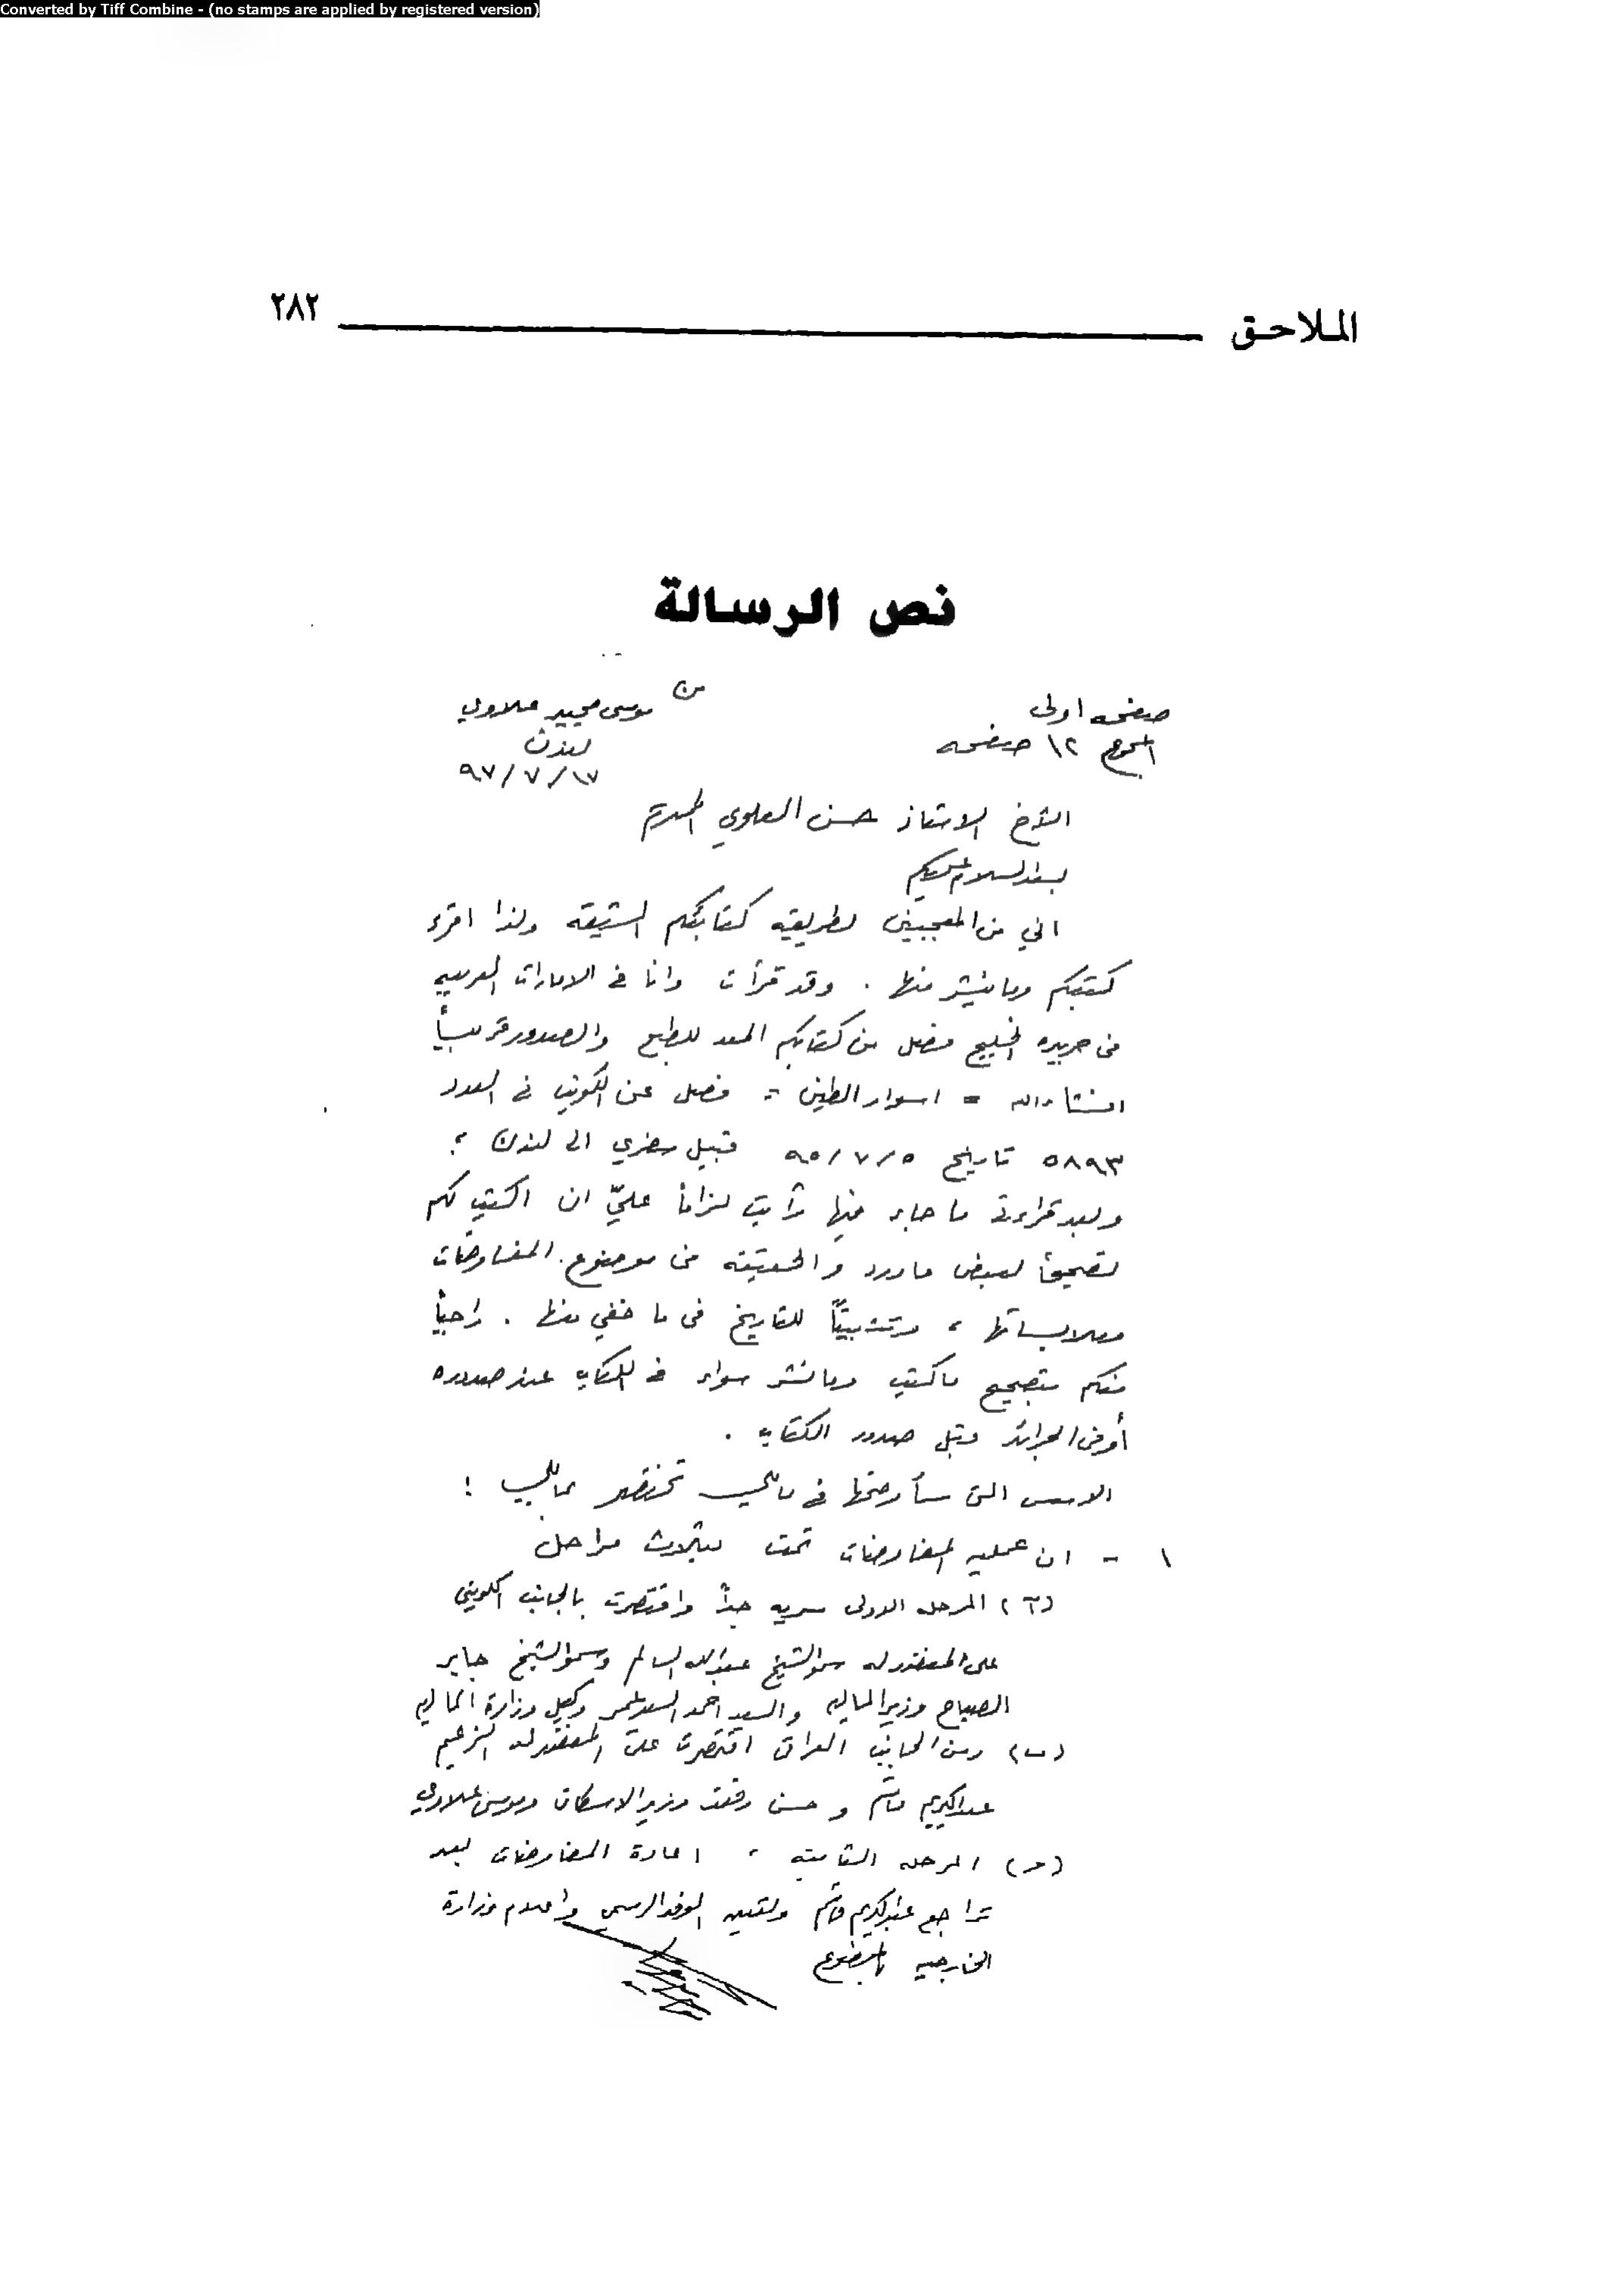 Converted by Tiff Combine - (no stamps are applied by registered version)
الملاحق ٢٨٢
نص الرسالة
صفحه اولى
المجموع ١٢ صفحه
من
موسى مجيد علاوي
لندن
٩٧/٧/١٧
الاخ الاستاذ حسن العلوي المحترم
بعد السلام عليكم
اني من المعجبين لطريقه كتابتكم الشيقه ولذا اقرء
كتبكم وما ينشر منها . وقد قرأت وانا في الامارات العربيه
في جريده الخليج فصل من كتابكم المعد للطبع والصدور قريباً
انشاءالله = اسوار الطين = فصل عن الكويت في العدد
٥٨٩٣ تاريخ ٩٥/٧/٥ قبيل سفري الى لندن ؛
وبعد قراءة ما جاء فيها رأيت لزاماً عليّ ان اكتب لكم
تصحيحاً لبعض ما ورد والحقيقه في موضوع المفاوضات
وملابساتها ، وتثبيتاً للتاريخ في ما خفي منها . راجياً
منكم تصحيح ما كتب وما نشر سواء في الكتاب عند صدوره
أو في الجرائد قبل صدور الكتاب .
الاسس التي سأوضحها في ما يلي تختصر بما يلي :
١ - ان عمليه المفاوضات تمت بثلاث مراحل
(آ) المرحله الاولى سريه جداً واقتصرت بالجانب الكويتي
على المغفور له سمو الشيخ عبدالله السالم وسمو الشيخ جابر
الصباح وزير الماليه والسيد احمد السيد عمر وكيل وزارة الماليه
(ب) ومن الجانب العراقي اقتصرت على المغفور له الزعيم
عبدالكريم قاسم و حسن رفعت وزير الاسكان وموسى علاوي
(ج) المرحله الثانيه ، اعادة المفاوضات بعد
تراجع عبدالكريم قاسم وتعيين الوفد الرسمي واعلام وزارة
الخارجيه بالموضوع